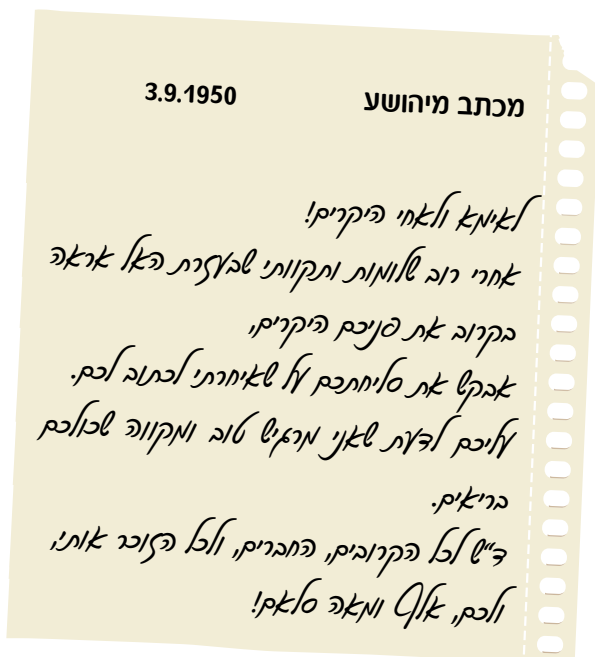 מכתב מיהושע 3.9.1950
לאימא ולאחי היקרים!
אחרי רוב שלומות ותקוותי שבעזרת האל אראה
בקרוב את פניכם היקרים,
אבקש את סליחתכם על שאיחרתי לכתוב לכם.
עליכם לדעת שאני מרגיש טוב ומקווה שכולכם
בריאים.
ד"ש לכל הקרובים, החברים, ולכל הזוכר אותי,
ולכם, אלף ומאה סלאם!